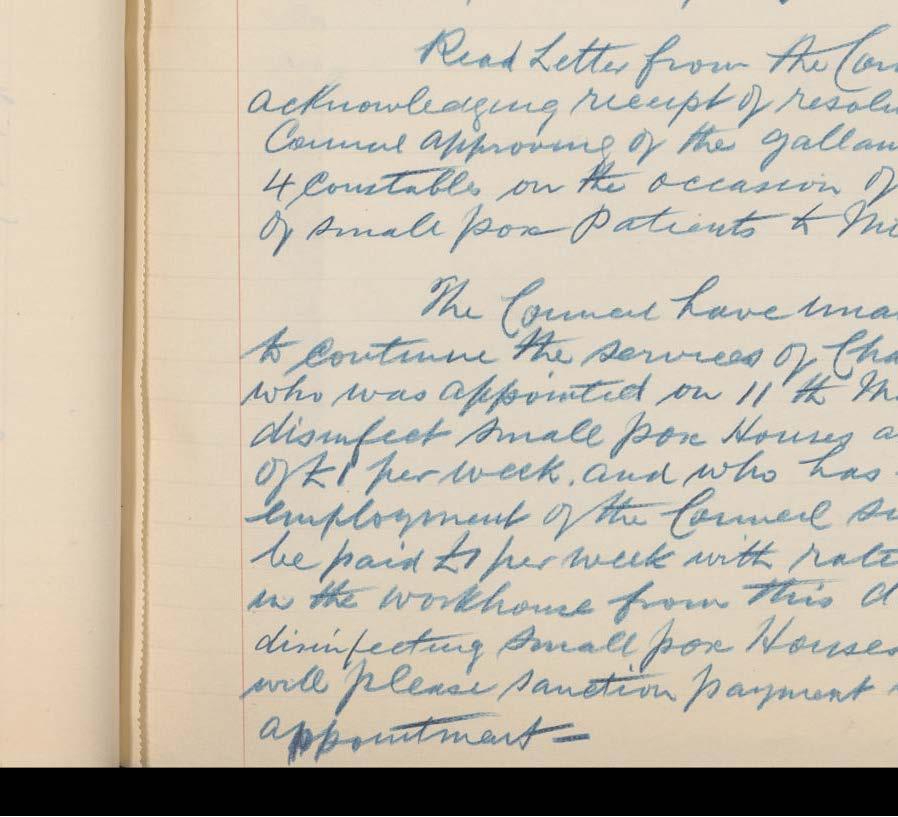 Read Letter from the Con
acknowledging receipt of resolu
Council approving of the gallan
4 constables on the occasion of
of small pox Patients to Mi
The Council have unan
to continue the services of Cha
who was appointed on 11th M
disinfect small pox Houses a
of £1 per week. and who has
employment of the Council si
be paid £1 per week with rati
in the workhouse from this d
disinfecting small pox Houses
will please sanction payment
appointment —